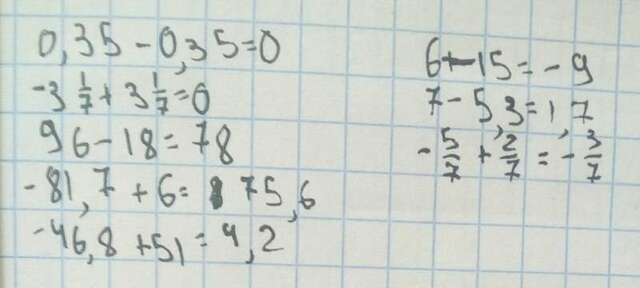 0,35 - 0,35 = 0
-3 1/7 + 3 1/7 = 0
96 - 18 = 78
-81,7 + 6 = 75,6
-46,8 + 51 = 4,2
6 - 15 = -9
7 - 5,3 = 1,7
-5/7 + 2/7 = -3/7